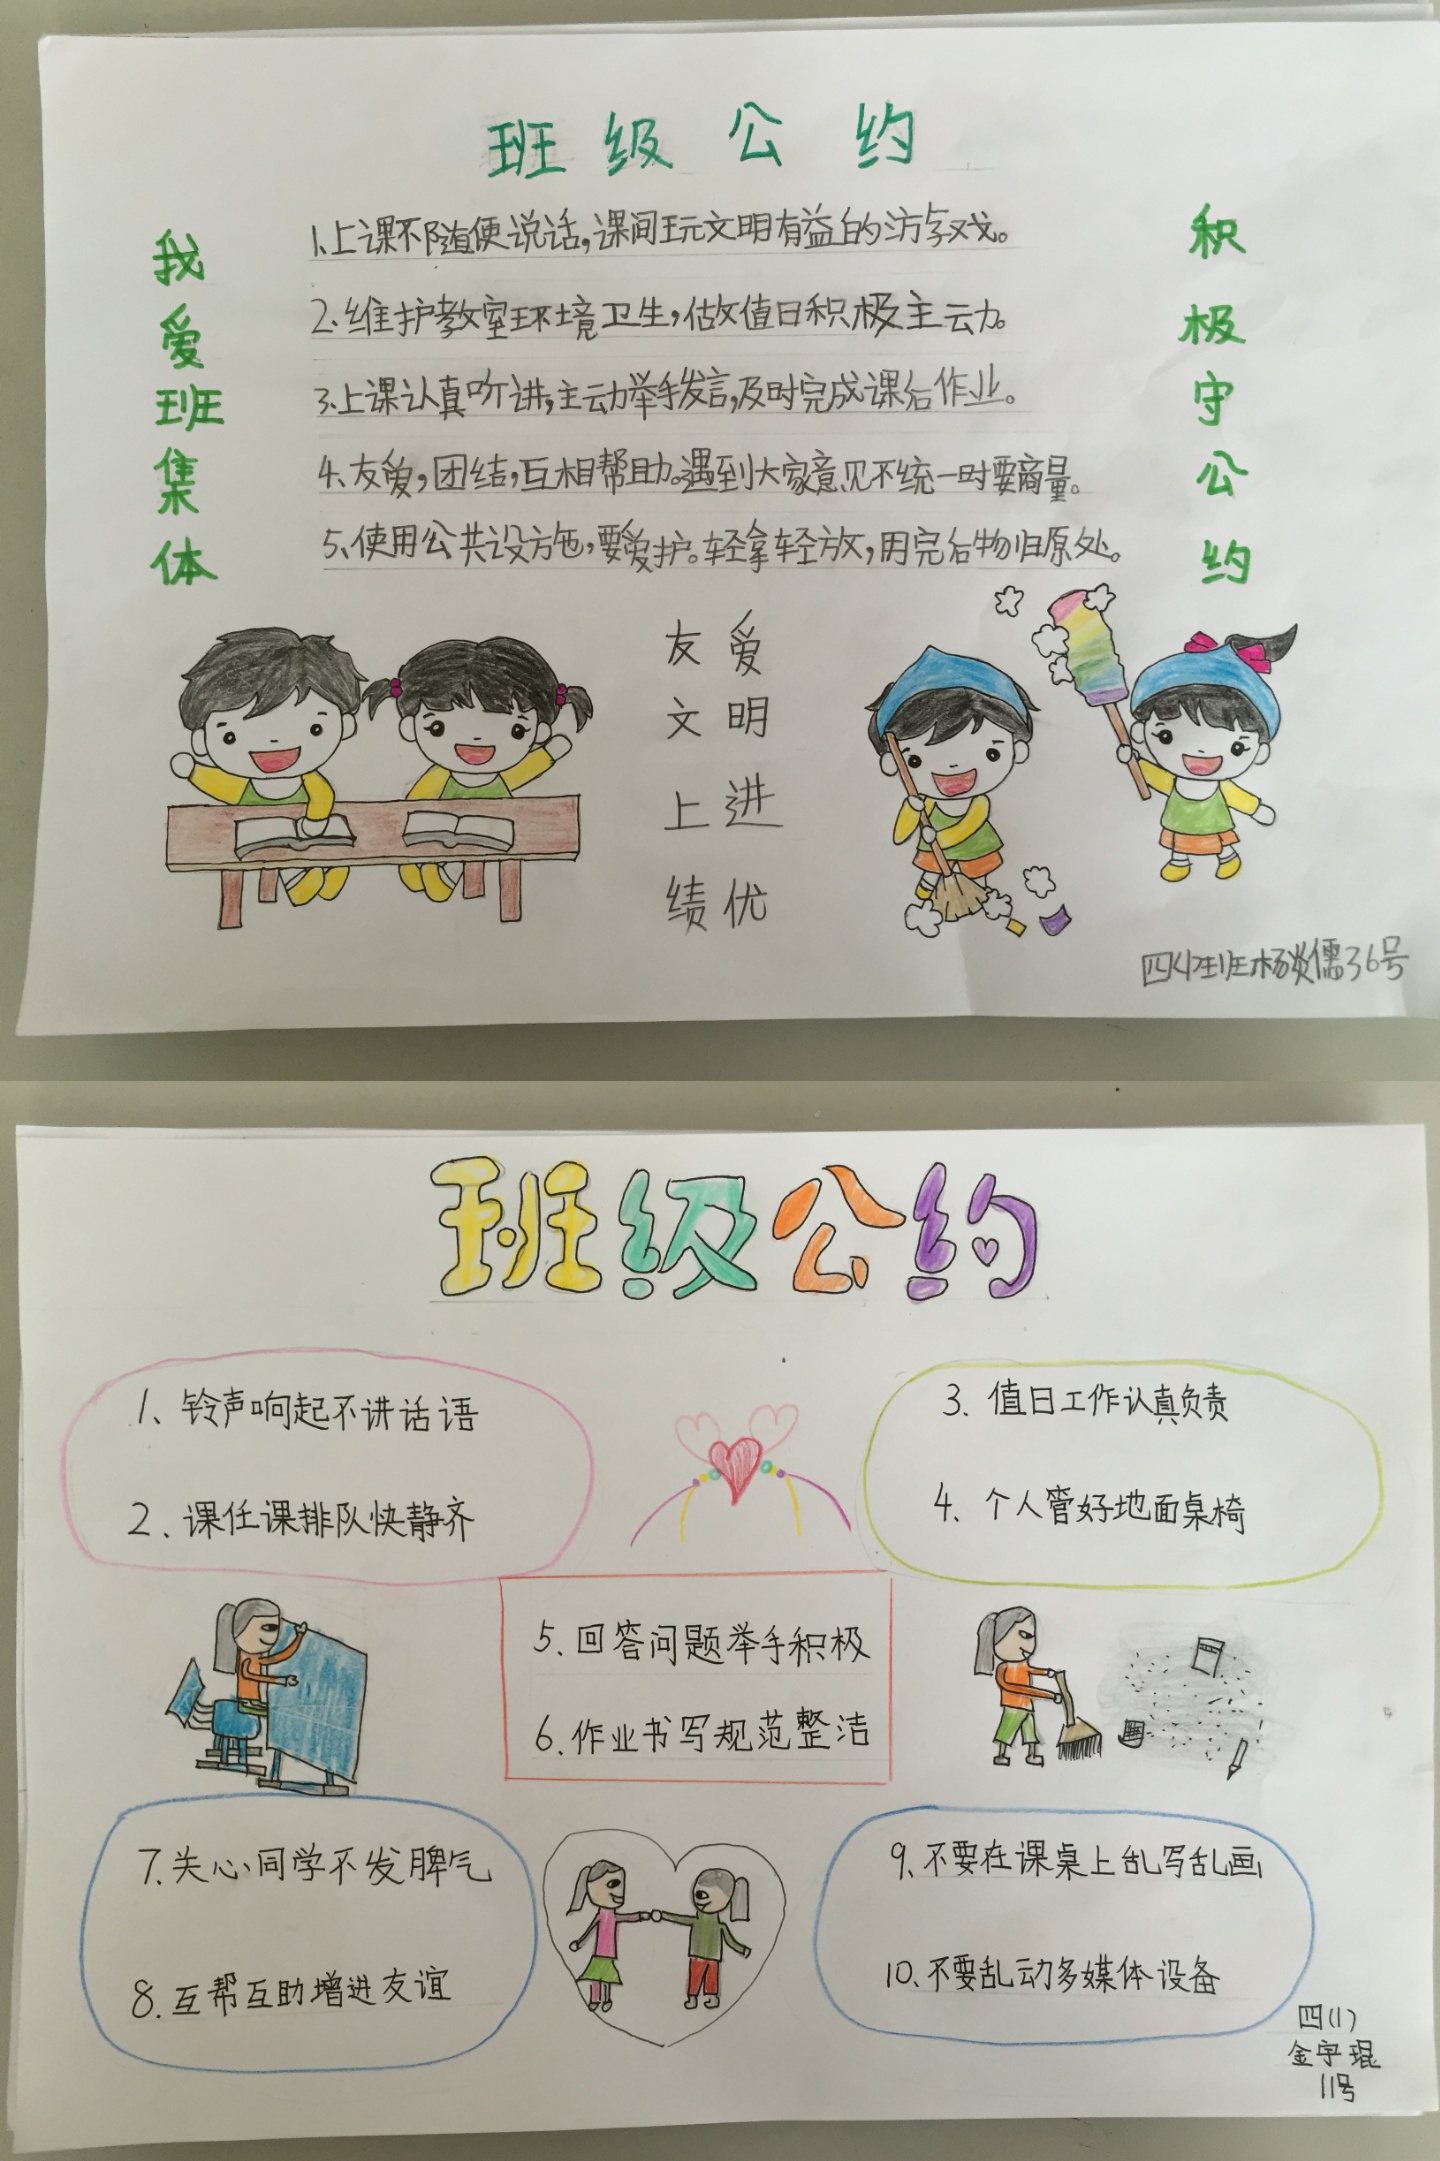 班级公约
我爱班集体
1.上课不随便说话,课间玩文明有益的游戏。
2.维护教室环境卫生,做值日积极主动。
3.上课认真听讲,主动举手发言,及时完成课后作业。
4.友爱,团结,互相帮助。遇到大家意见不统一时要商量。
5.使用公共设施,要爱护。轻拿轻放,用完后物归原处。
积极守公约
友爱
文明
上进
绩优
四(1)班杨谈儒36号
班级公约
1、铃声响起不讲话语
2、课任课排队快静齐
3、值日工作认真负责
4、个人管好地面桌椅
5.回答问题举手积极
6.作业书写规范整洁
7.关心同学不发脾气
8.互帮互助增进友谊
9、不要在课桌上乱写乱画
10、不要乱动多媒体设备
四(1)
金宇琨
11号